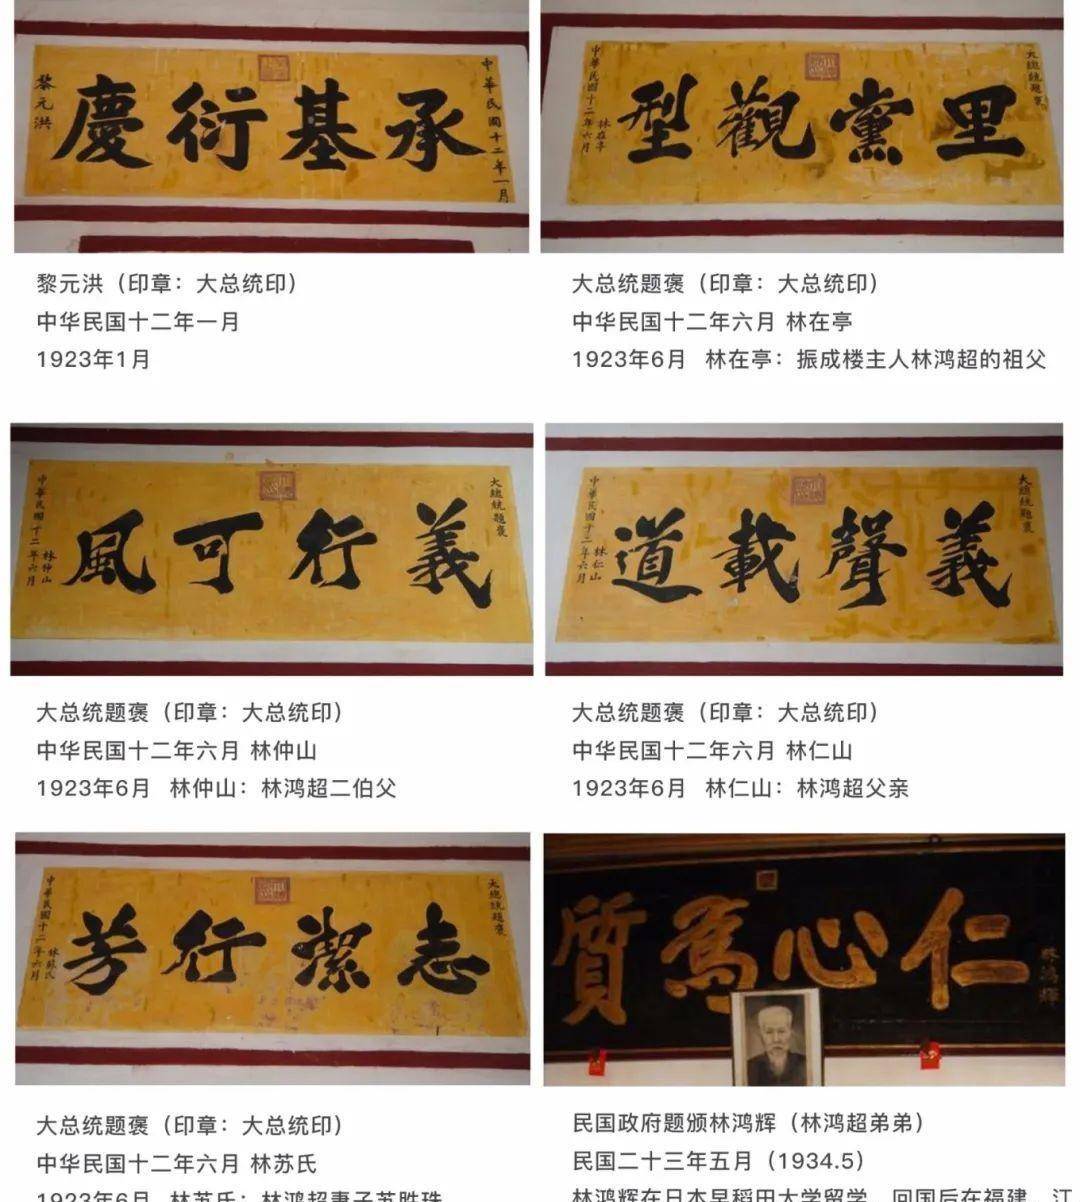 中華民國十二年一月
承基衍慶
黎元洪
大總統題褒
里黨觀型
林在亭
中華民國十二年六月
黎元洪（印章：大总统印）
中华民国十二年一月
1923年1月
大总统题褒（印章：大总统印）
中华民国十二年六月 林在亭
1923年6月 林在亭：振成楼主人林鸿超的祖父
大總統題褒
義行可風
林仲山
中華民國十二年六月
大總統題褒
義聲載道
林仁山
中華民國十二年六月
大总统题褒（印章：大总统印）
中华民国十二年六月 林仲山
1923年6月 林仲山：林鸿超二伯父
大总统题褒（印章：大总统印）
中华民国十二年六月 林仁山
1923年6月 林仁山：林鸿超父亲
大總統題褒
志潔行芳
林蘇氏
中華民國十二年六月
仁心為質
林鴻輝
大总统题褒（印章：大总统印）
中华民国十二年六月 林苏氏
1923年6月 林苏氏：林鸿超妻子苏胜珠
民国政府题颁林鸿辉（林鸿超弟弟）
民国二十三年五月（1934.5）
林鸿辉在日本早稻田大学留学，回国后在福建、江